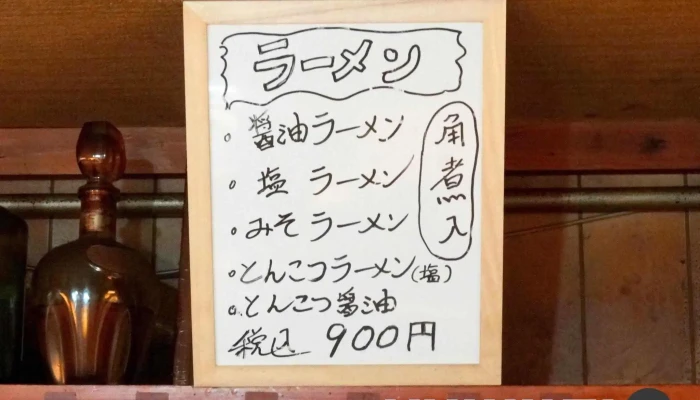 ラーメン
。醤油ラーメン
。塩 ラーメン
。みそ ラーメン
。とんこつラーメン(塩)
。とんこつ醤油
税込 900円
角煮入